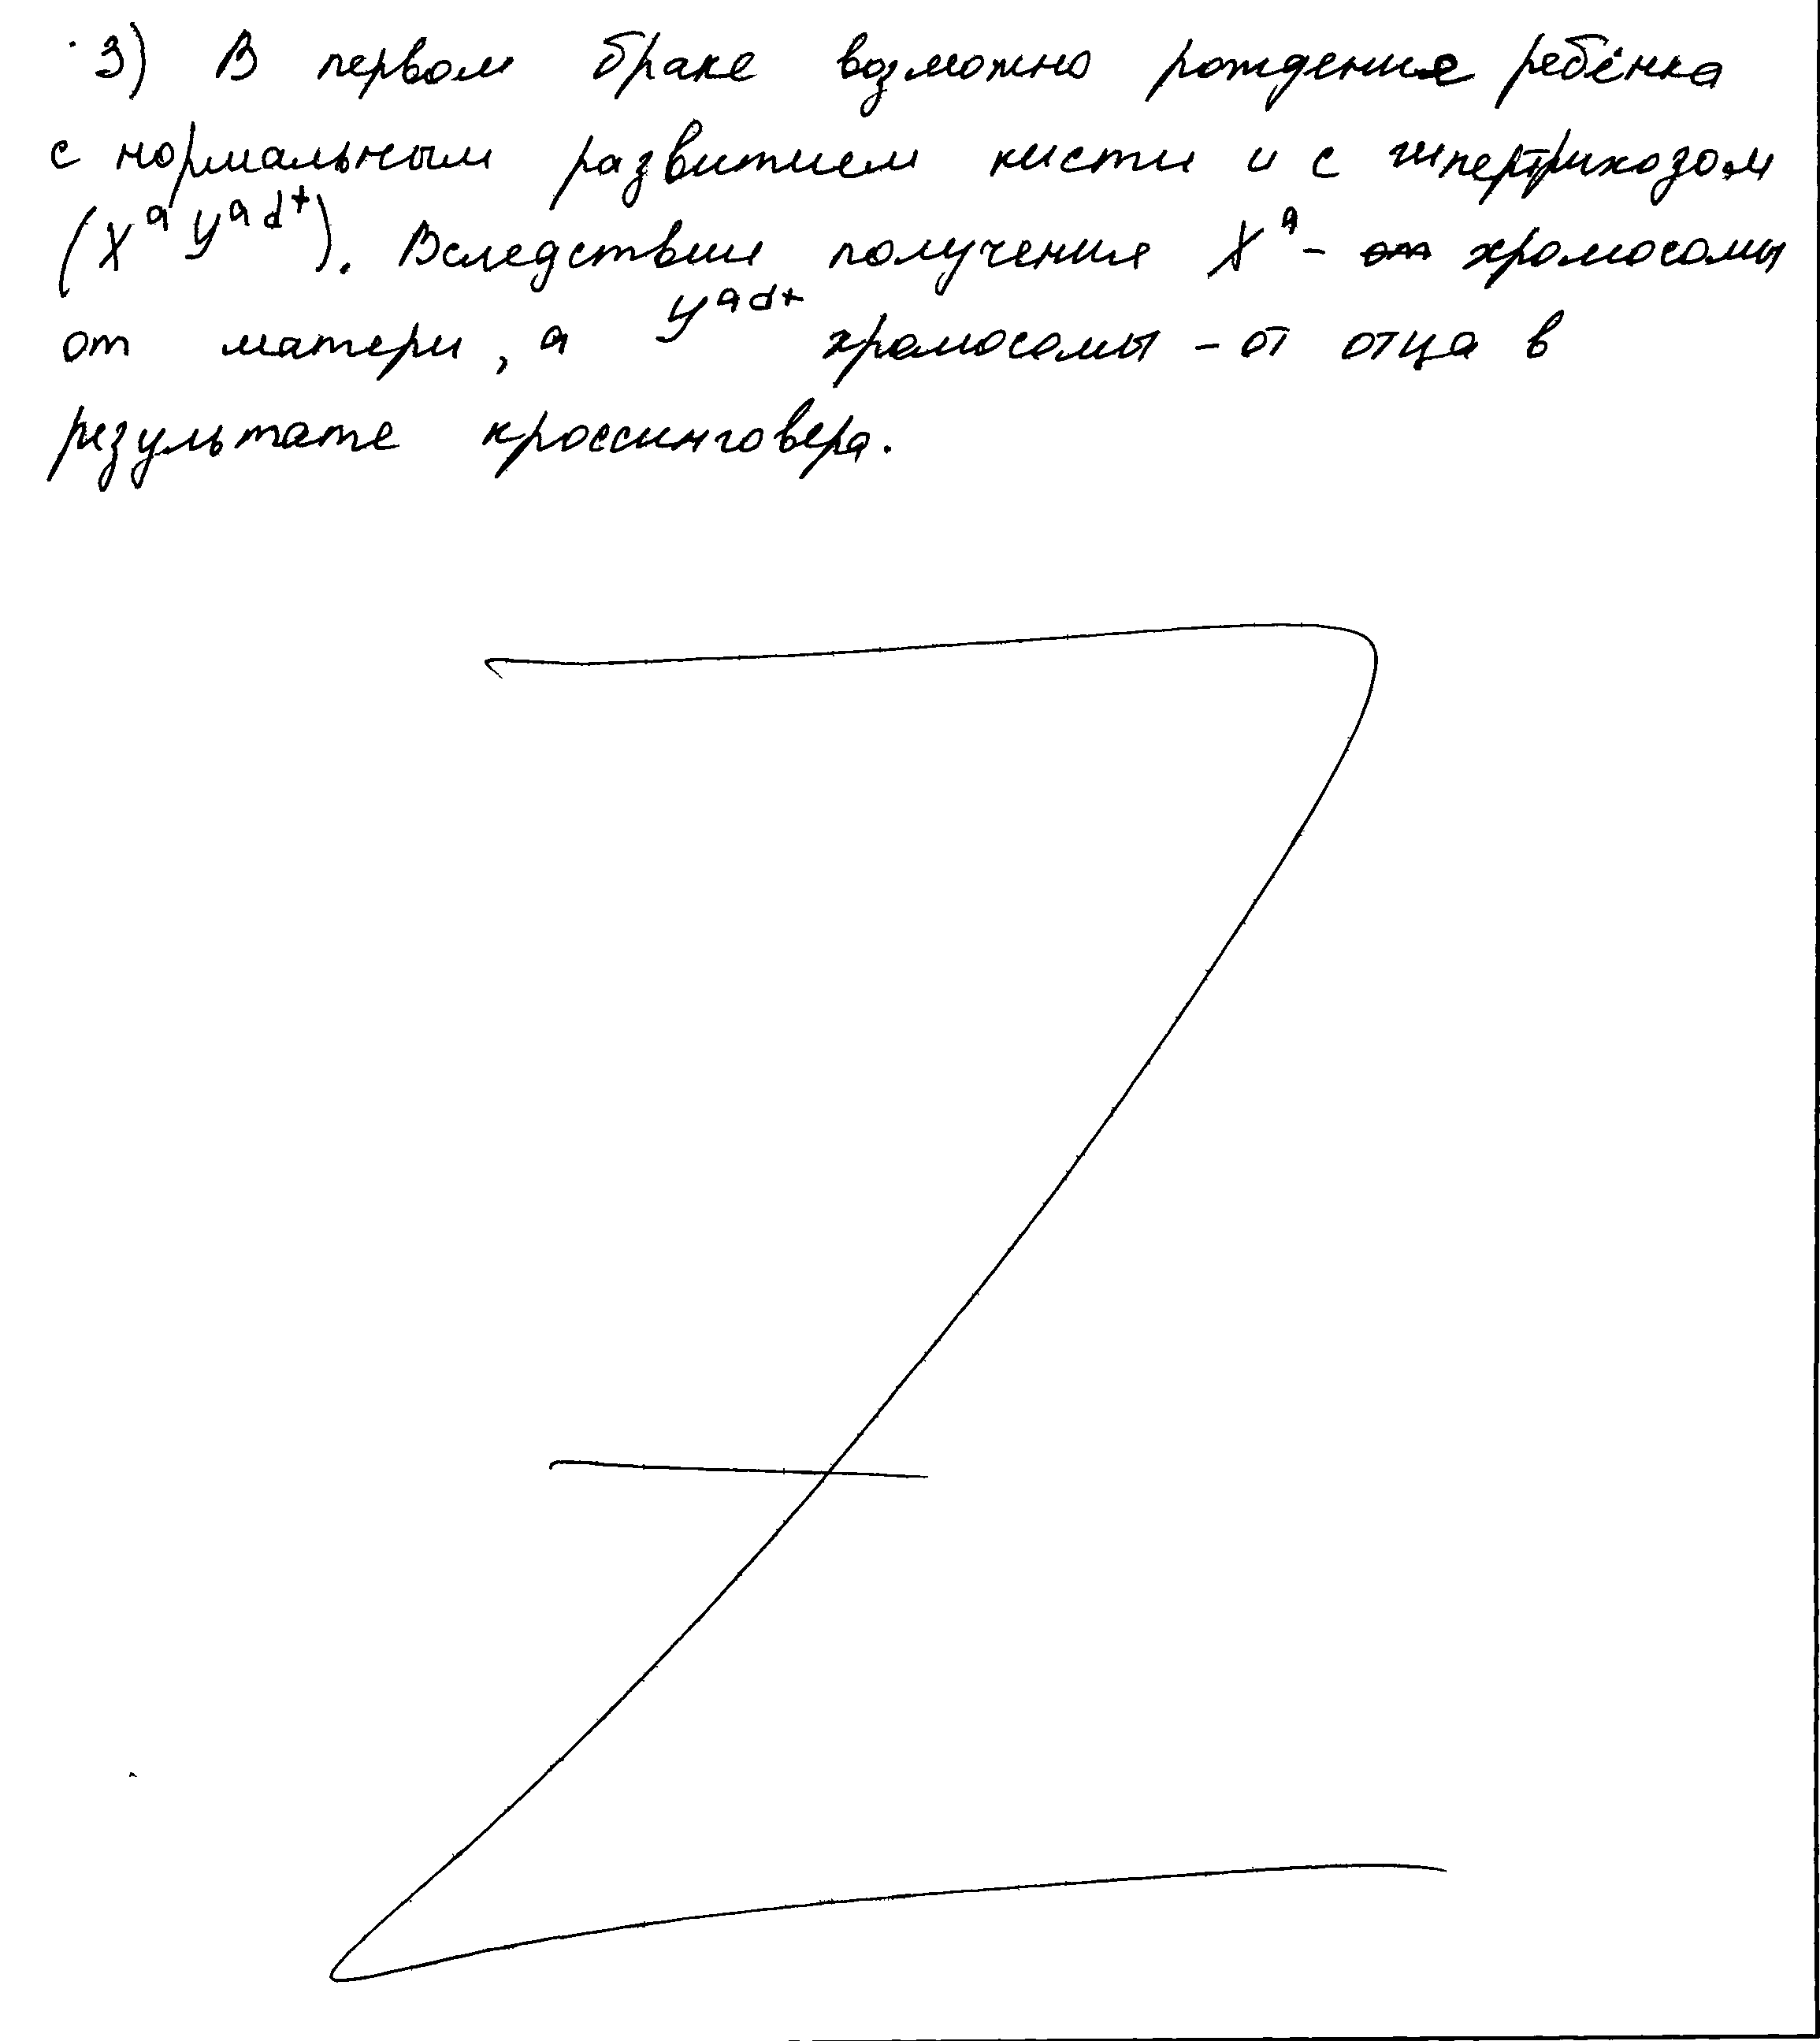 3) В первом браке возможно рождение ребёнка
с нормальным развитием кисти и с гипертрихозом
(X^a Y^ad+). Вследствии получения X^a - от хромосомы
от матери, а Y^ad+ хромосомы - от отца в
результате кроссинговера.